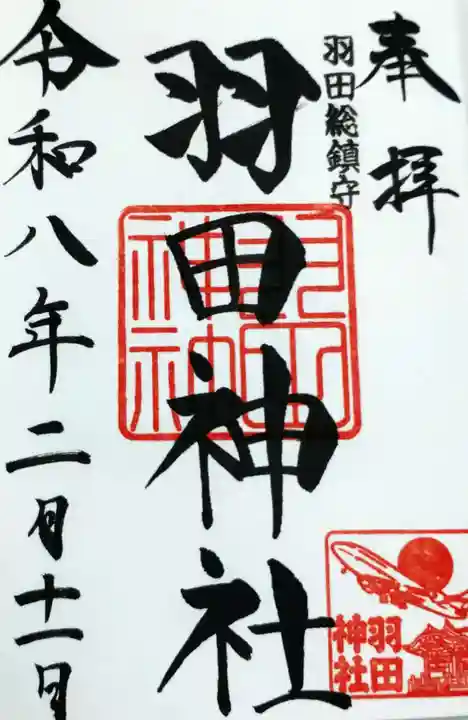 奉拝
羽田総鎮守
羽田神社
令和八年二月十一日
羽田
神社